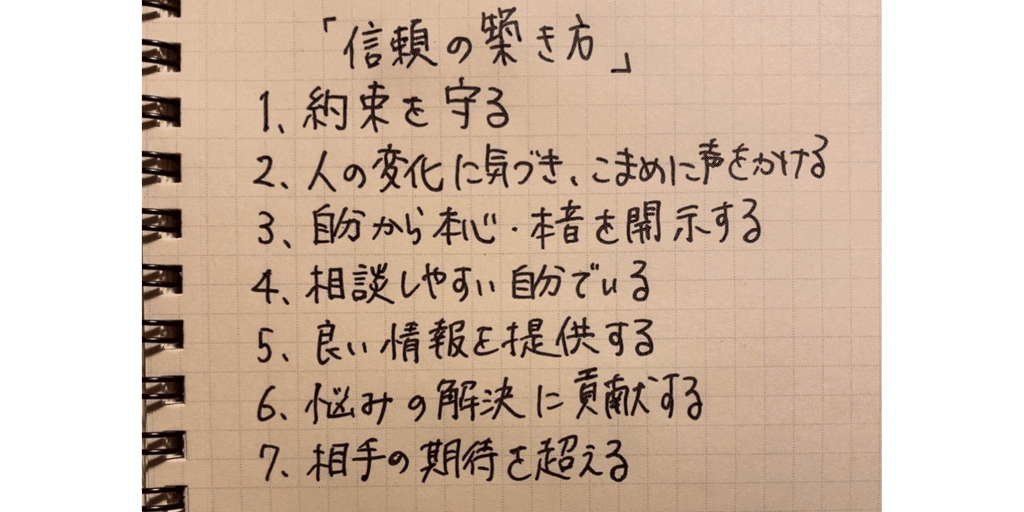 「信頼の築き方」
1、約束を守る
2、人の変化に気づき、こまめに声をかける
3、自分から本心・本音を開示する
4、相談しやすい自分でいる
5、良い情報を提供する
6、悩みの解決に貢献する
7、相手の期待を超える